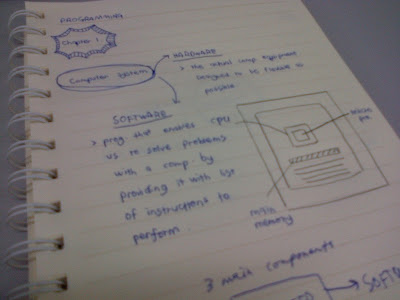 PROGRAMMING
Chapter 1
Computer System
HARDWARE
> the actual comp equipment
designed to be flexible as
possible
SOFTWARE
> prog that enables
us to solve problems
with a comp. by
providing it with list
of instructions to
perform.
CPU
main
memory
3 main components
SOFTW